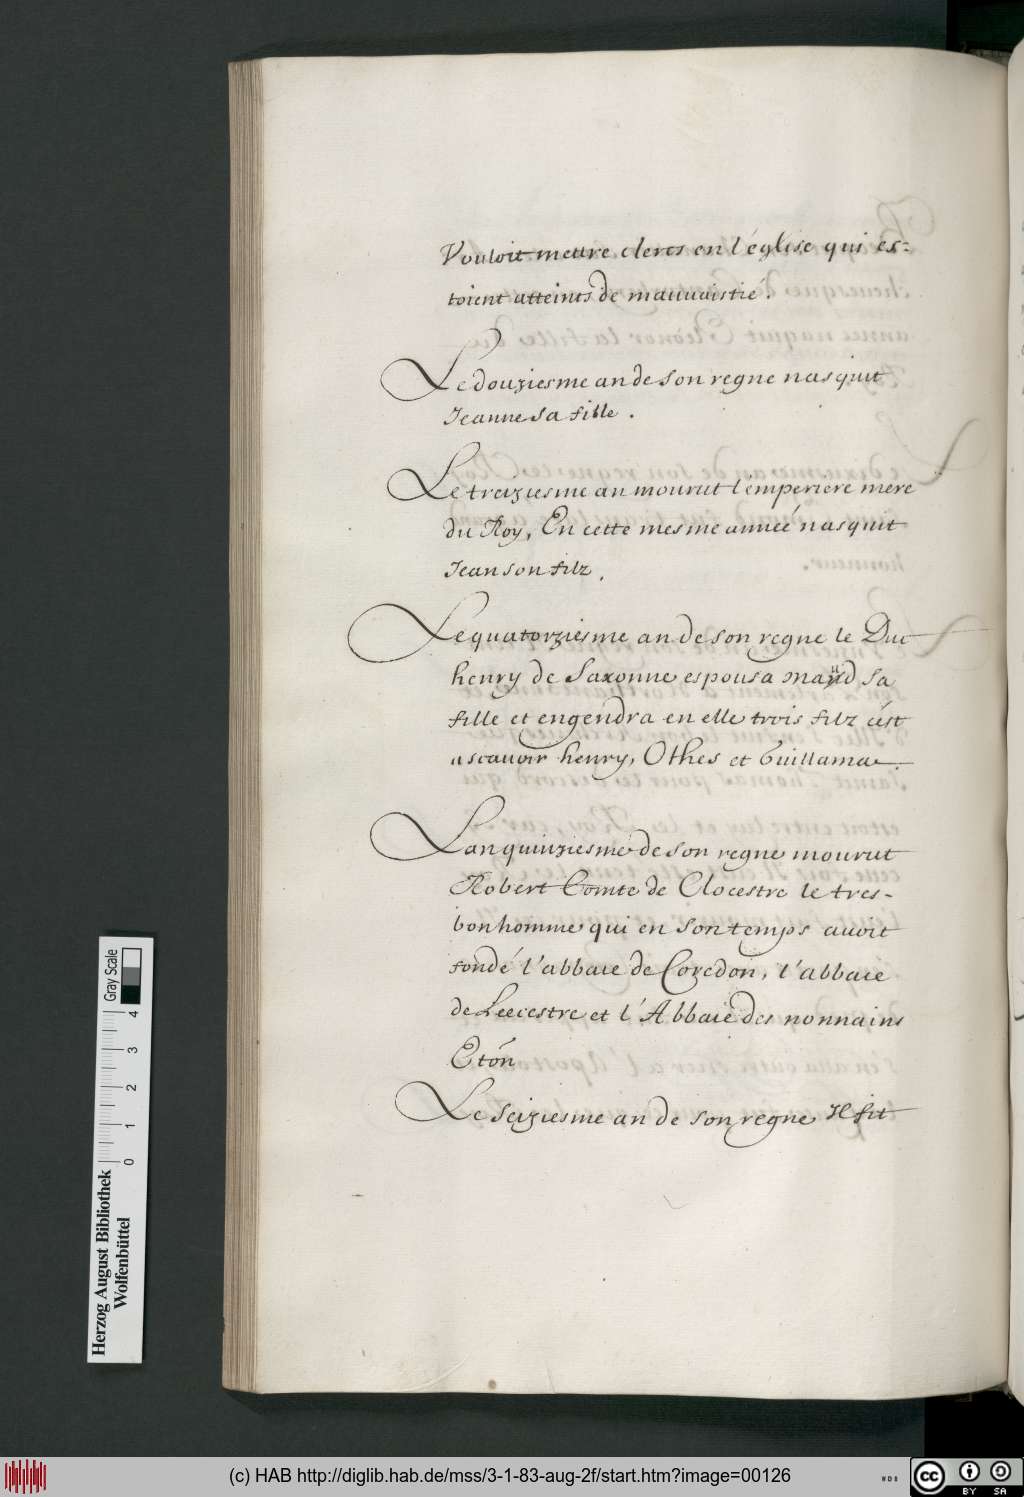 Vouloit mettre clercs en l'église qui es-
toient atteints de mauuaistié.
Le douziesme an de son regne nasquit
Jeanne sa fille.
Le treiziesme an mourut l'emperiere mere
du Roy, En cette mesme anneé nasquit
Jean son filz.
Le quatorziesme an de son regne le Duc
henry de Saxonne espousa Maud sa
fille et engendra en elle trois filz c'est
ascauoir henry, Othes et Guillamae.
Lan quinziesme de son regne mourut
Robert Comte de Clocestre le tres-
bon homme qui en son temps auoit
fondé l'abbaie de Coredon, l'abbaie
de Leecestre et l'Abbaie des nonnains
Etón
Le seiziesme an de son regne Il fit
Herzog August Bibliothek
Wolfenbüttel
0 1 2 3 4
Gray Scale
(c) HAB http://diglib.hab.de/mss/3-1-83-aug-2f/start.htm?image=00126
WDB
cc BY SA